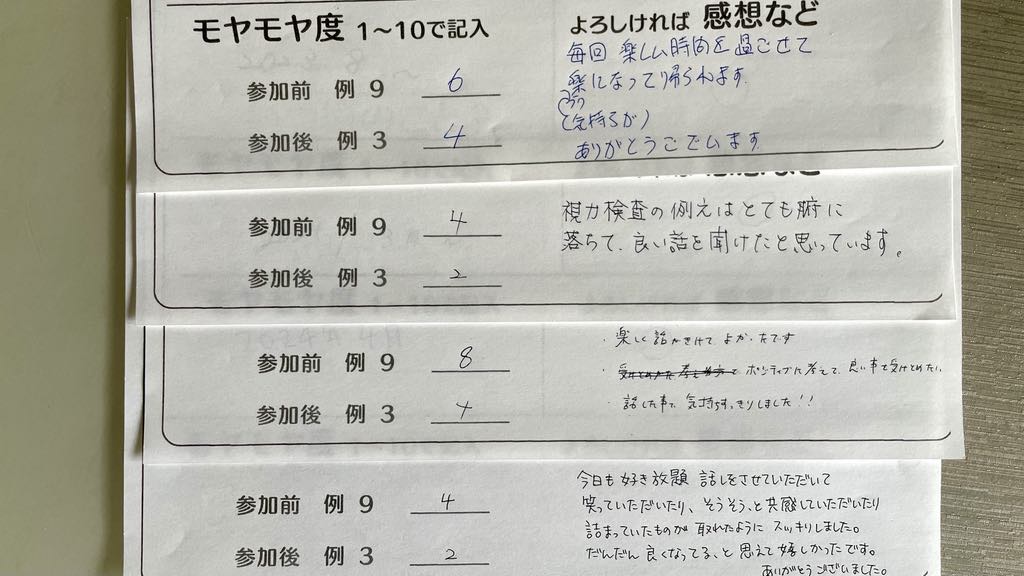 モヤモヤ度 1～10で記入
よろしければ 感想など
参加前 例 9 6
参加後 例 3 4
毎回 楽しい時間を過ごせて
楽になって帰られます。
(気持ちが)
ありがとうございます
参加前 例 9 4
参加後 例 3 2
視力検査の例えはとても腑に
落ちて、良い話を聞けたと思っています。
参加前 例 9 8
参加後 例 3 4
・楽しく話がきけてよかったです
・ ポジティブに考えて、良い事で受けとめたい。
・話した事で、気持ちすっきりしました!!
参加前 例 9 4
参加後 例 3 2
今日も好き放題 話しをさせていただいて
笑っていただいたり、そうそう、と共感していただいたり
詰まっていたものが 取れたように スッキリしました。
だんだん 良くなってる、と思えて 嬉しかったです。
ありがとうございました。